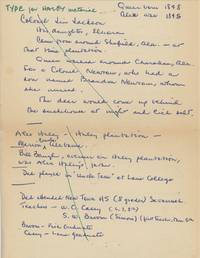 TYPE for HARDY material
Queen born 1898
Alex was 1895
Colonel Jim Jackson
His daughter,
Came from around Sheffield, Ala. — at
that time plantation
Queen around Ala.
For a Colonel Newson, who had a
son named Brandon Newson, whom
she nursed.
The deer would come up behind
the smokehouse at night and lick salt.
Alex Haley - Haley plantation -
Marion, Alabama
Bill Baugh, overseer on Haley plantation,
was Alex Haley's father.
Dad played in "Uncle Tom" at Lane College
Dad attended New Town HS (8 grades) Savannah.
Teachers - W. C. Casey
S. W. Broom (Simon)
Broom - Fisk Graduate
Casey - Lane graduate